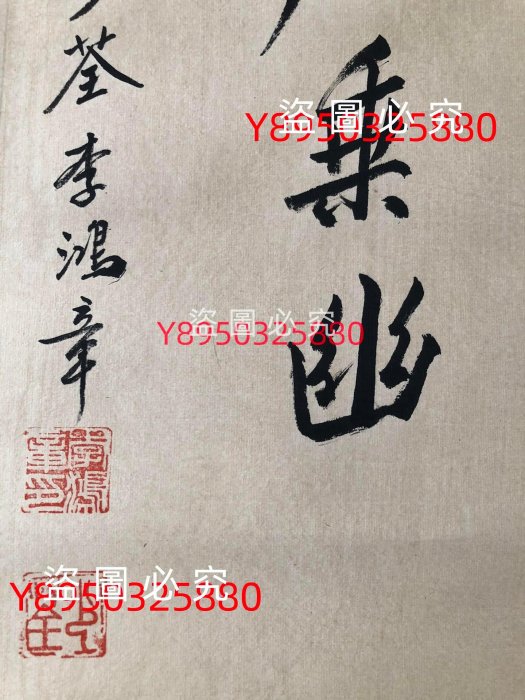 乘幽
荃李鴻章
李鴻章印
盜圖必究
Y8950325880
盜圖必究
Y8950325880
盜圖必究
Y8950325880